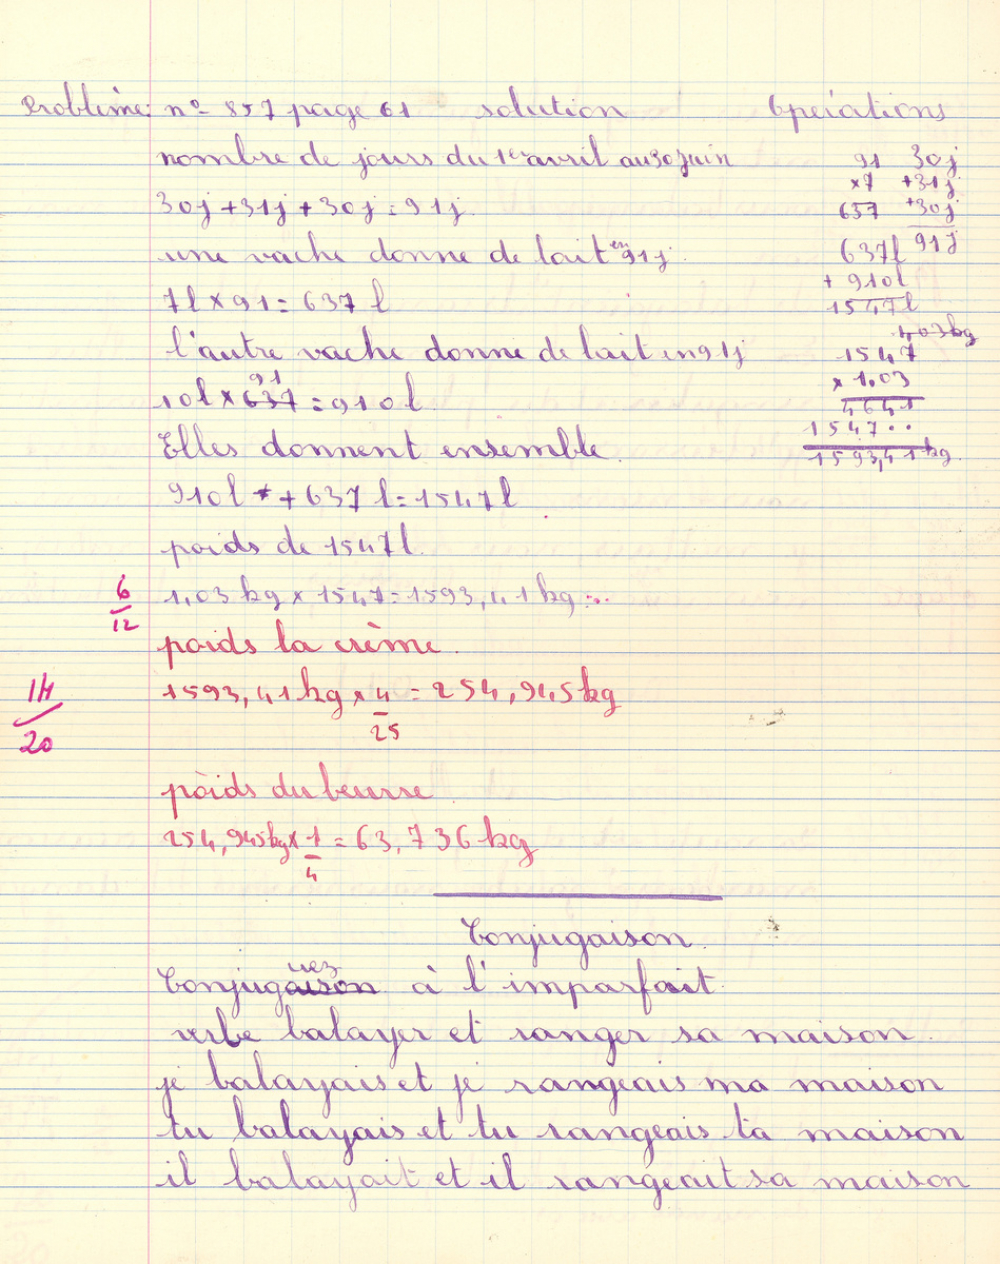 Problème: n° 857 page 61 solution Opérations
nombre de jours du 1er avril au 30 juin
30j + 31j + 30j = 91j
une vache donne de lait en 91j.
7l × 91 = 637 l
l'autre vache donne de lait en 91j
91
10l × 637 = 910 l.
Elles donnent ensemble
910l + 637 l = 1547 l
poids de 1547 l.
1,03 kg × 1547 = 1593,41 kg
poids la crème.
1593,41 kg × 4/25 = 254,945 kg
poids du beurre
254,945kg × 1/4 = 63,736 kg
91 30j
×7 +31j
637 +30j
91j
637l
+ 910l
1547l
1,03kg
1547
× 1,03
4641
1547··
1593,41 kg.
6/12
14/20
Conjugaison.
uez
Conjugaison à l'imparfait.
verbe balayer et ranger sa maison.
je balayais et je rangeais ma maison
tu balayais et tu rangeais ta maison
il balayait et il rangeait sa maison